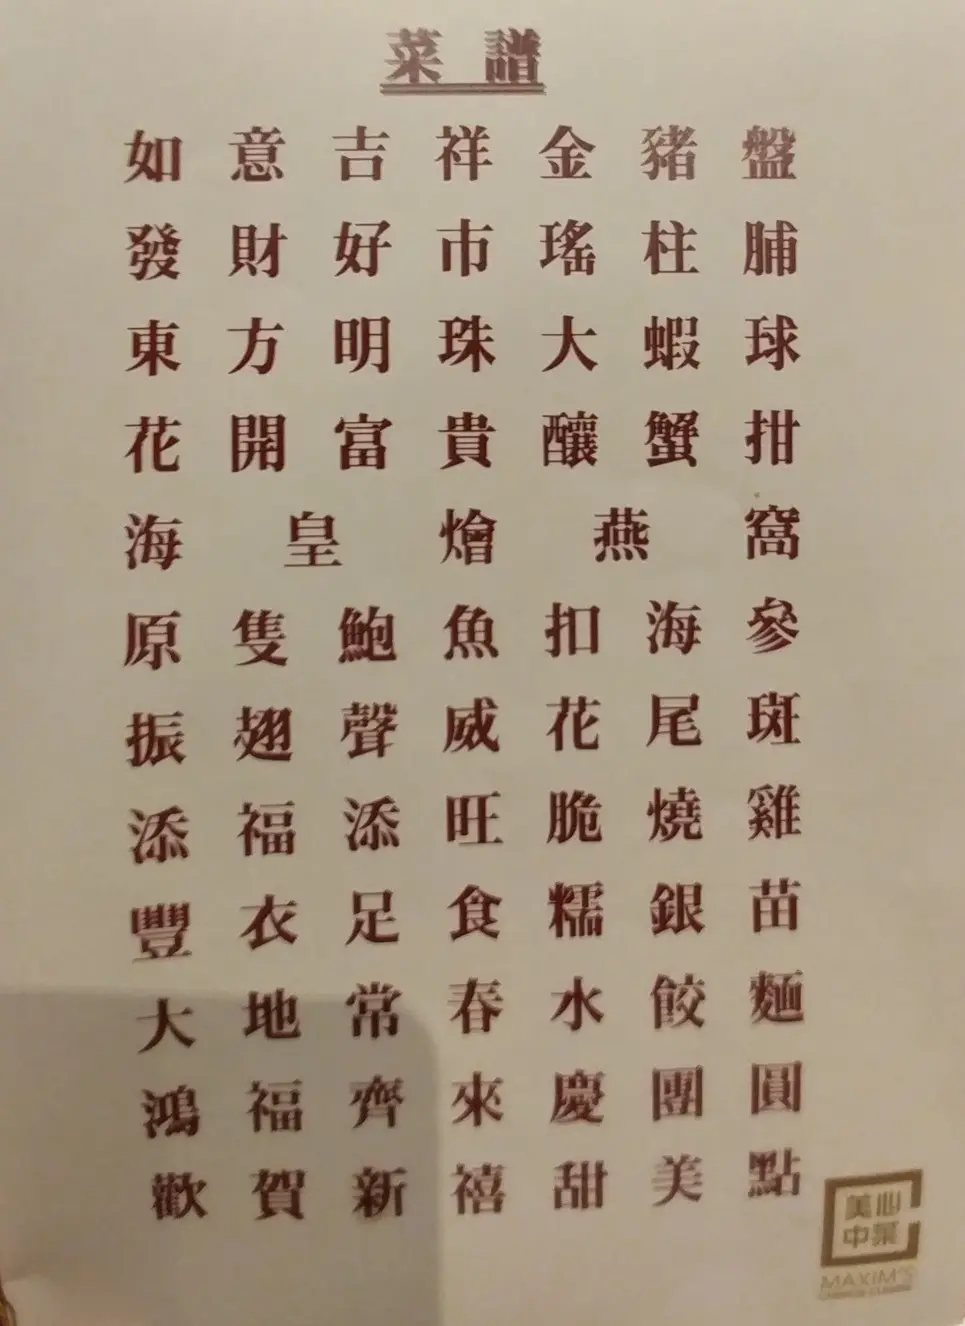 菜譜
如意吉祥金豬盤
發財好市瑤柱脯
東方明珠大蝦球
花開富貴釀蟹拑
海皇燴燕窩
原隻鮑魚扣海參
振翅聲威花尾斑
添福添旺脆燒雞
豐衣足食糯銀苗
大地常春水餃麵
鴻福齊來慶團圓
歡賀新禧甜美點
美心
中菜
MAXIM'S
CHINESE CUISINE